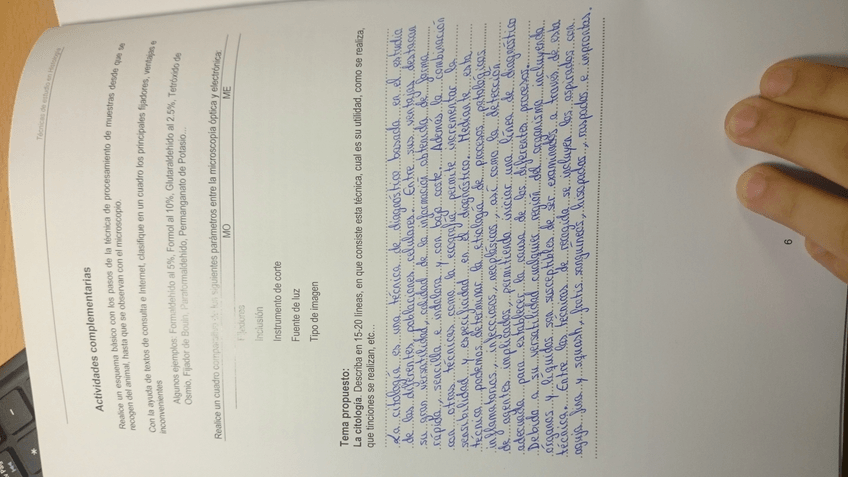 Técnicas de estudio en Histología
Actividades complementarias
Realice un esquema básico con los pasos de la técnica de procesamiento de muestras desde que se
recogen del animal, hasta que se observan con el microscopio.
Con la ayuda de textos de consulta e Internet, clasifique en un cuadro los principales fijadores, ventajas e
inconvenientes
Algunos ejemplos: Formaldehído al 5%, Formol al 10%, Glutaraldehído al 2.5%, Tetróxido de
Osmio, Fijador de Bouin, Paraformaldehído, Permanganato de Potasio...
Realice un cuadro comparativo de los siguientes parámetros entre la microscopía óptica y electrónica:
MO ME
Fijadores
Inclusión
Instrumento de corte
Fuente de luz
Tipo de imagen
Tema propuesto:
La citología. Describa en 15-20 líneas, en que consiste esta técnica, cual es su utilidad, como se realiza,
que tinciones se realizan, etc...
La citología es una técnica de diagnóstico basada en el estudio
de las diferentes poblaciones celulares. Entre sus ventajas destacan
su gran versatilidad, calidad de la información obtenida de forma
rápida, sencilla e indolora y con bajo coste. Además la combinación
con otras técnicas como la ecografía permite incrementar la
sensibilidad y especificidad en el diagnóstico. Mediante esta
técnica podemos determinar la etiología de procesos patológicos
inflamatorios, infecciosos, neoplásicos, así como la detección
de agentes implicados, permitiendo iniciar una línea de diagnóstico
adecuada para establecer la causa de los diferentes procesos.
Debido a su versatilidad cualquier región del organismo incluyendo
órganos y líquidos son susceptibles de ser examinados a través de esta
técnica. Entre las técnicas de recogida se incluyen los aspirados con
aguja fina y squash, frotis sanguíneos, hisopados, raspados e improntas.
6